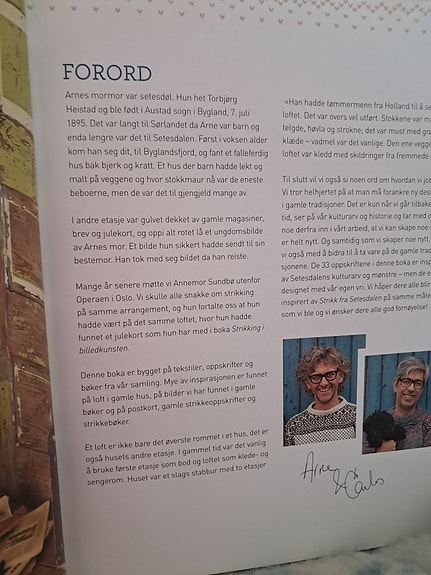 FORORD
Arnes mormor var setesdøl. Hun het Torbjørg
Heistad og ble født i Austad sogn i Bygland, 7. juli
1895. Det var langt til Sørlandet da Arne var barn og
enda lengre var det til Setesdalen. Først i voksen alder
kom han seg dit, til Byglandsfjord, og fant et falleferdig
hus bak bjerk og kratt. Et hus der barn hadde lekt og
malt på veggene og hvor stokkmaur nå var de eneste
beboerne, men de var det til gjengjeld mange av.
I andre etasje var gulvet dekket av gamle magasiner,
brev og julekort, og oppi alt rotet lå et ungdomsbilde
av Arnes mor. Et bilde hun sikkert hadde sendt til sin
bestemor. Han tok med seg bildet da han reiste.
Mange år senere møtte vi Annemor Sundbø utenfor
Operaen i Oslo. Vi skulle alle snakke om strikking
på samme arrangement, og hun fortalte oss at hun
hadde vært på det samme loftet, hvor hun hadde
funnet et julekort som hun har med i boka Strikking i
billedkunsten.
Denne boka er bygget på tekstiler, oppskrifter og
bøker fra vår samling. Mye av inspirasjonen er funnet
på loft i gamle hus, på bilder vi har funnet i gamle
bøker og på postkort, gamle strikkeoppskrifter og
strikkebøker.
Et loft er ikke bare det øverste rommet i et hus, det er
også husets andre etasje. I gammel tid var det vanlig
å bruke første etasje som bod og loftet som klede- og
sengerom. Huset var et slags stabbur med to etasjer
«Han hadde tømmermenn fra Holland til å se
loftet. Det var overs vel utført. Stokkene var
telgde, høvla og strokne; det var must med
klæde – vadmel var det vanlige. Den ene vegge
loftet var kledd med skildringer fra fremmede
Til slutt vil vi også si noen ord om hvordan vi
Vi tror helhjertet på at man må forankre ny
i gamle tradisjoner. Det er kun når vi går tilbake
tid, ser på vår kulturarv og historie og tar med
noe derfra inn i vårt arbeid, at vi kan skape noe
er helt nytt. Og samtidig som vi skaper noe nytt,
vi også med å bidra til å ta vare på de gamle
sjonene. De 33 oppskriftene i denne boka er
av Setesdalens kulturarv og mønstre – men de
designet med vår egen vri. Vi håper dere alle blir
inspirert av Strikk fra Setesdalen på samme måte
som vi ble og vi ønsker dere alle god fornøyelse!
Arne
& Carlos